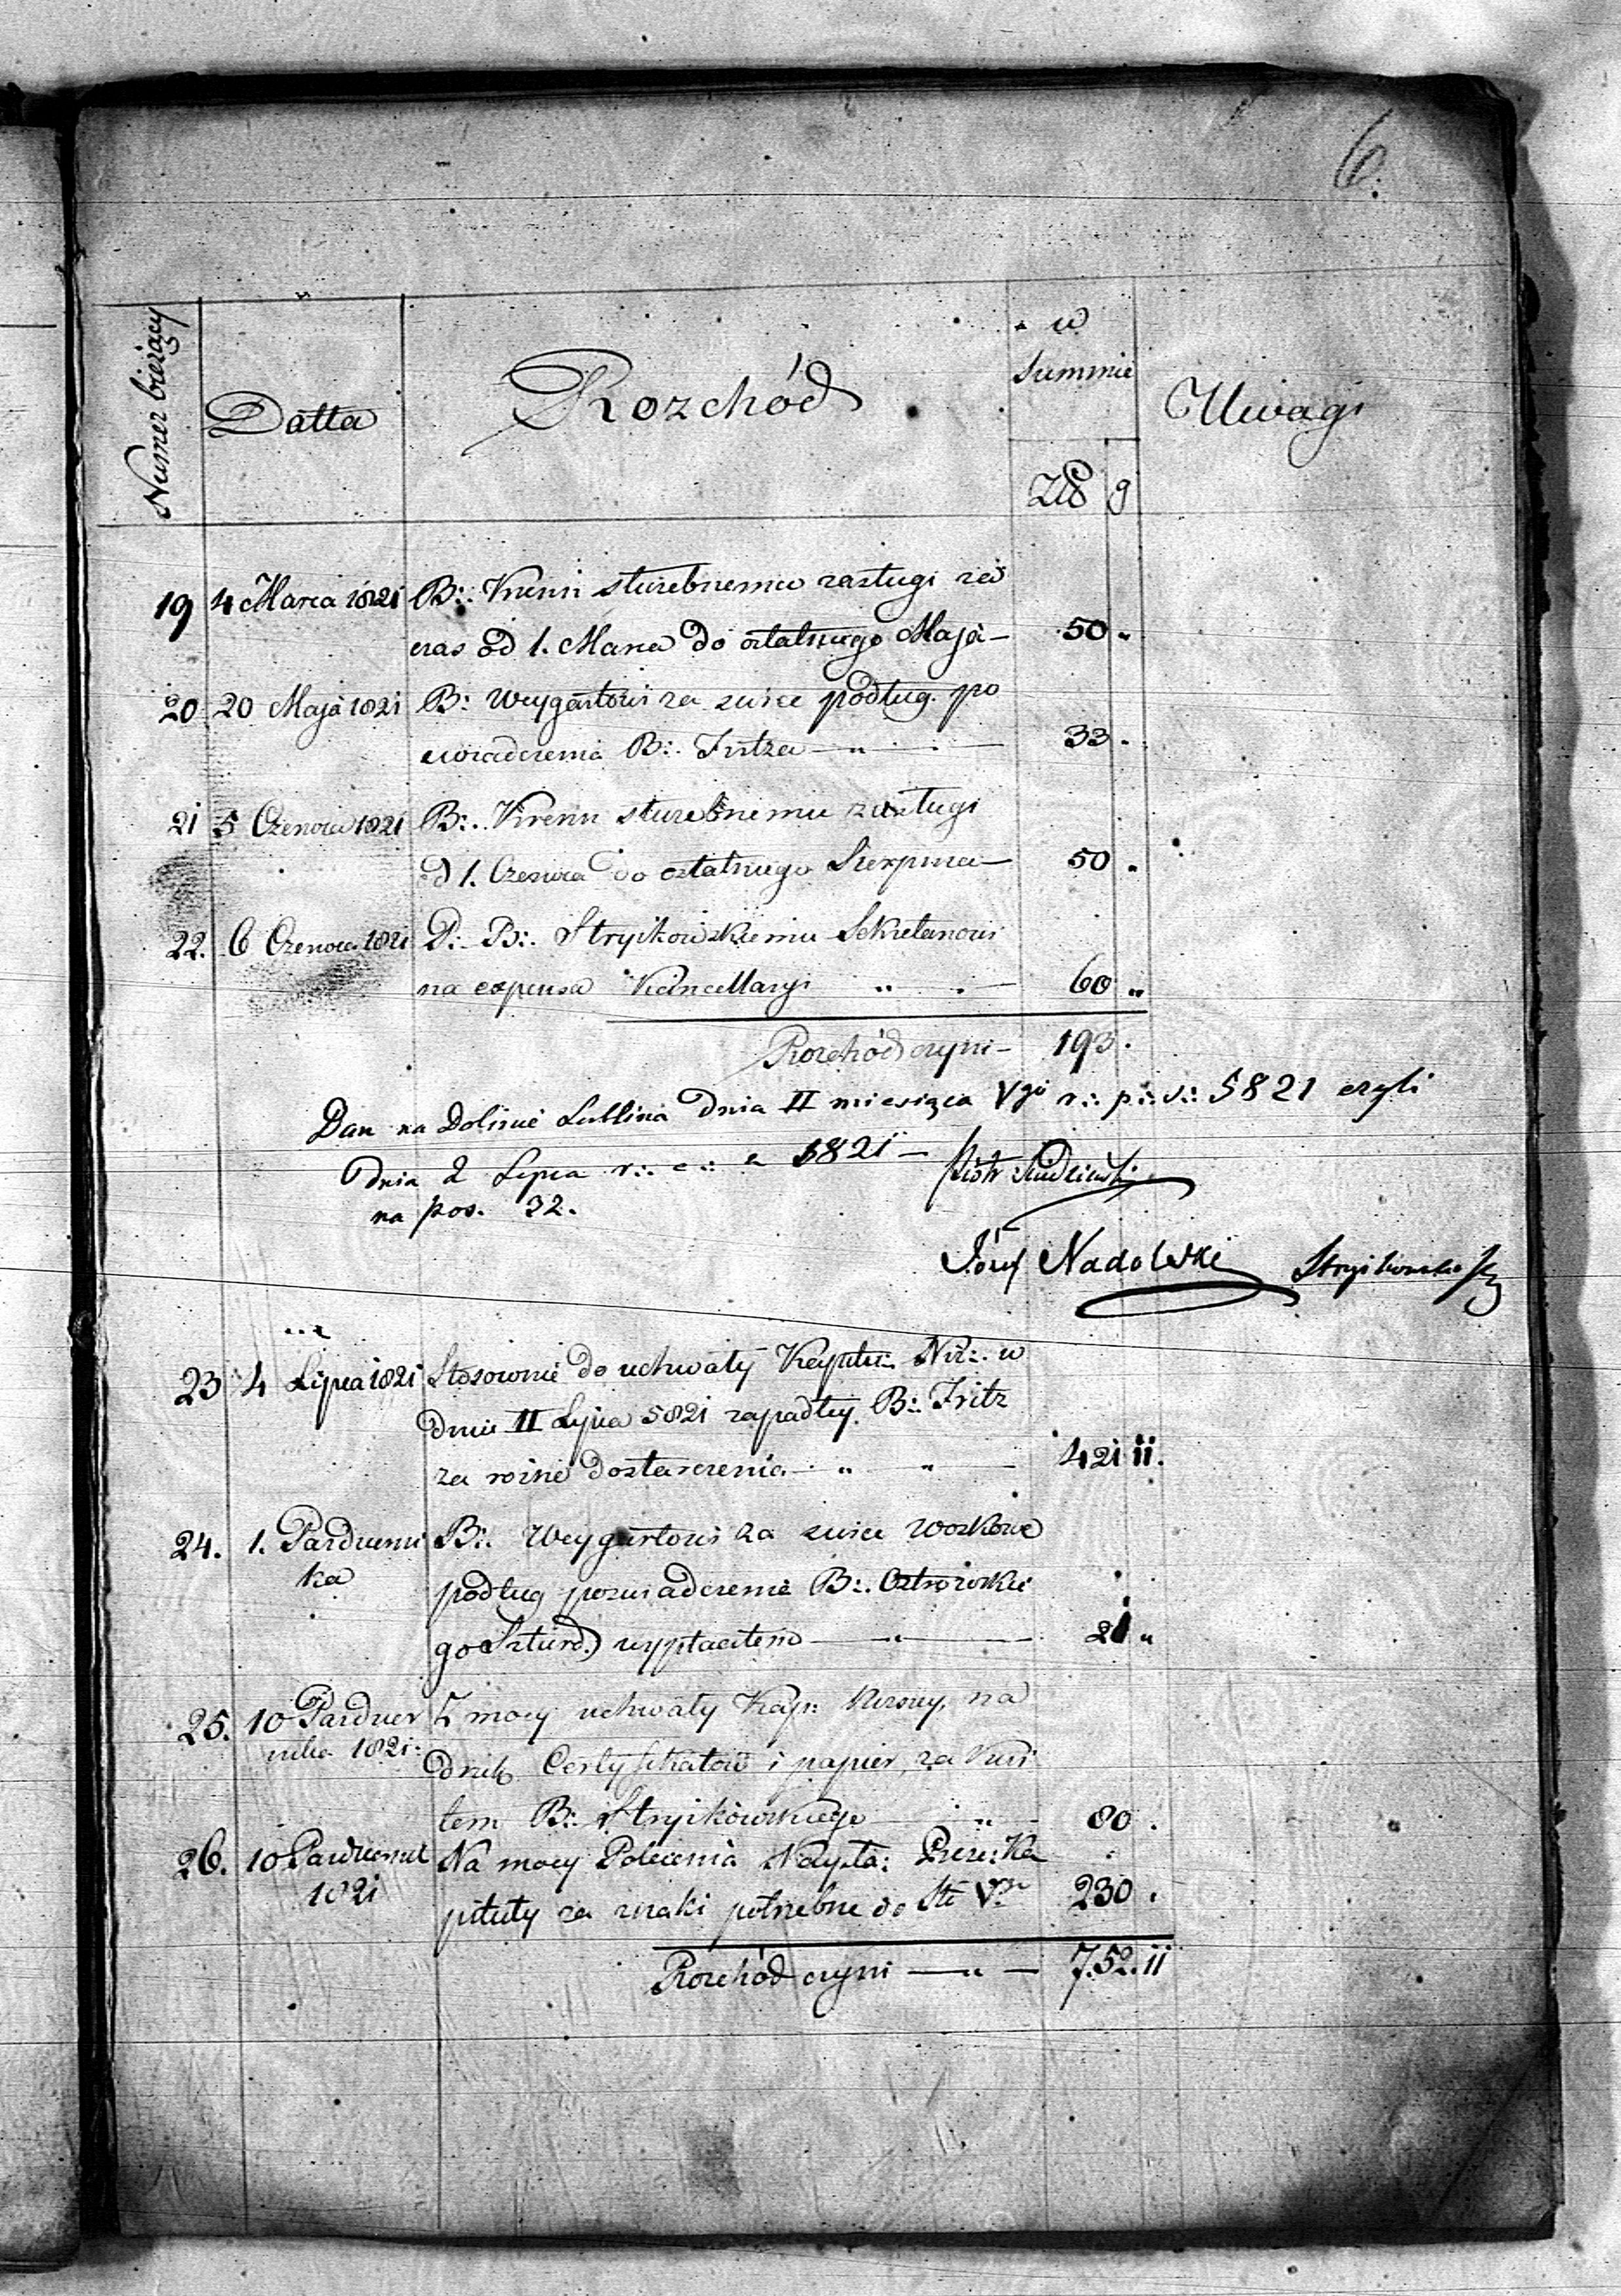 6.
Numer bieżący
Datta
Rozchód
w
Summie
Uwagi
Zł g
19 4 Marca 1821 B:. służebnemu zasługi za
czas od 1. Marca do ostatniego Maja — 50 "
20 20 Maja 1821 B: Weygartowi za świce podług. po
świadczenia B:. Fritza — " — 33 .
21 5 Czerwca 1821 B:. służebnemu zasługi
od 1. Czerwca do ostatniego Sierpnia — 50 "
22. 6 Czerwca 1821 D:. B:. Stryikowskiemu Sekretarzowi
na expensa Kancellaryi " . — 60 "
Rozchód czyni — 193 .
Dan na Dolinie Lublina Dnia II miesiąca Vgo r:. p:. ś:. 5821 czyli
Dnia 2 Lipca r:. e:. 1821 —
na pos. 32.
Piotr
Józef Nadolski Stryikowski
23 4 Lipca 1821 Stosownie do uchwały Kapitu:. Niż:. w
dniu II Lipca 5821 zapadłey. B:. Fritz
za rożne dostarczenia " " — 421 ii.
24. 1. Październi B:. Weygartowi za świce woskowe
ka podług poświadczenia B:. Ostrowskie
go wypłaciłem — " — 21 "
25. 10 Paździer Z mocy uchwały Kap:. na
nika 1821. druk Certyfikatów i papier, za Kwi
tem B:. Stryikowskiego — " — 80 .
26. 10 Październik Na mocy Polecenia Ka
1821 pituły za znaki potrzebne do St: V 230 .
Rozchód czyni — " — 752. ii